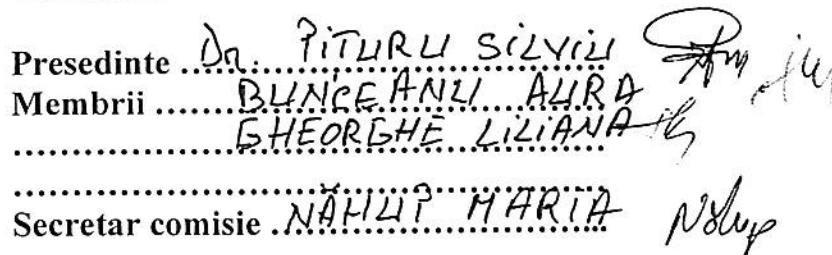 Presedinte ..Dr. PITURU SILVIU
Membrii ......BUNCEANU AURA
..................GHEORGHE LILIANA
..............................................
Secretar comisie .NĂHUP MARIA